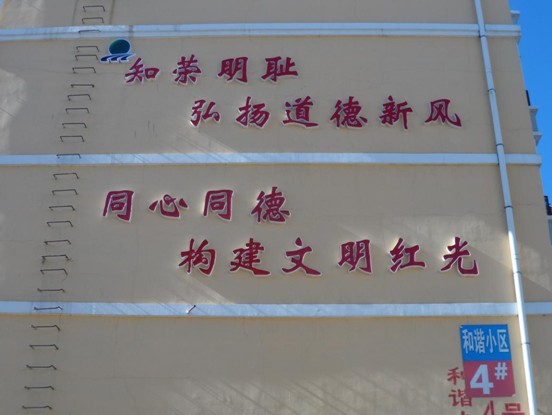 知荣明耻
弘扬道德新风
同心同德
构建文明红光
和谐小区
4#
和谐
4号